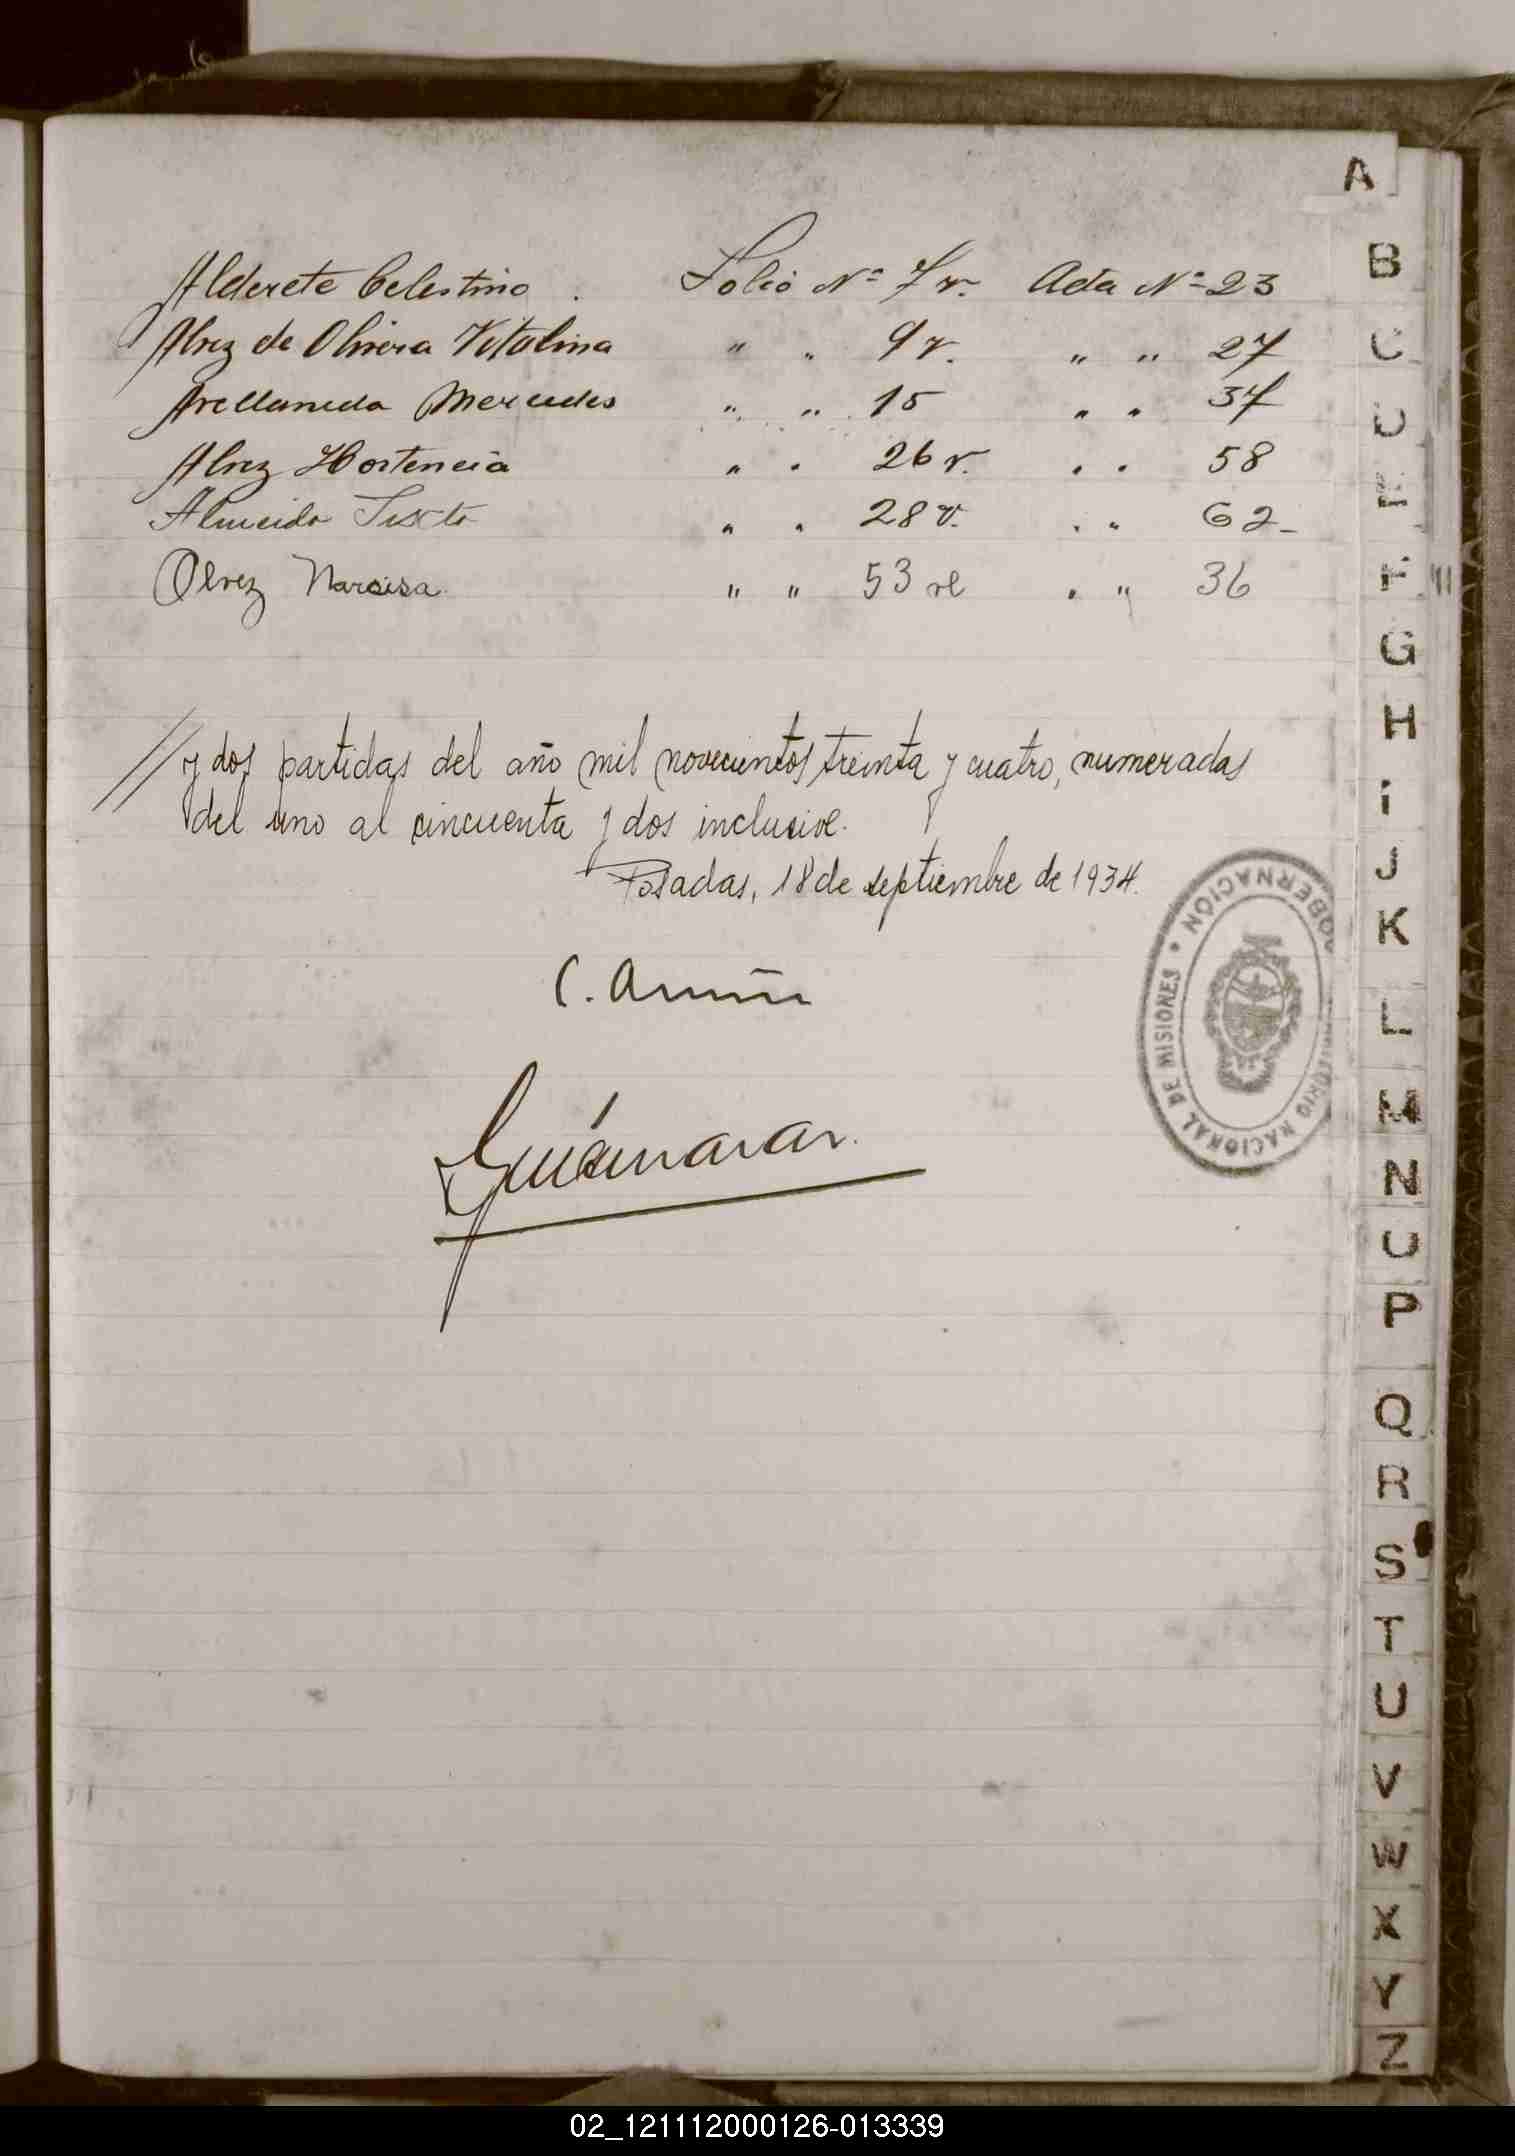 A
Alderete Celestino . Folio Nº 7 v. Acta Nº 23
Alvez de Olivera Vitalina " " 9 v. " " 27
Avellaneda Mercedes " " 15 " " 37
Alvez Hortencia " " 26 v. " " 58
Almeida Sixto " " 28 v. " " 62-
Alvez Narcisa " " 53 vt " " 36
// y dos partidas del año mil novecientos treinta y cuatro, numeradas
del uno al cincuenta y dos inclusive.
Posadas, 18 de septiembre de 1934.
GOBERNACIÓN • TERRITORIO NACIONAL DE MISIONES •
C.
B
C
D
E
F
G
H
I
J
K
L
M
N
O
P
Q
R
S
T
U
V
W
X
Y
Z
02_121112000126-013339